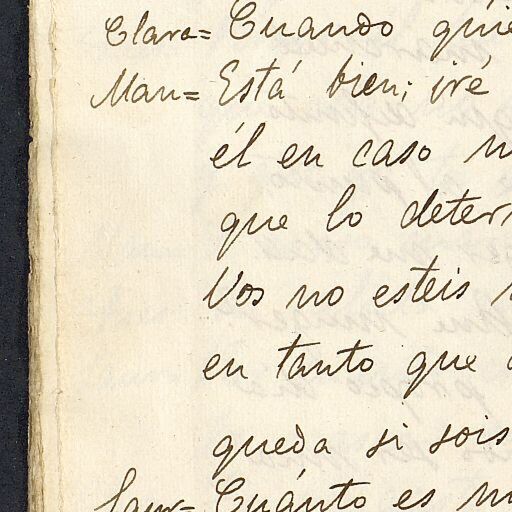 Clara= Cuando quie
Man= Está bien; iré
él en caso n
que lo deter
Vos no esteis
en tanto que
queda si sois
Cuánto es m